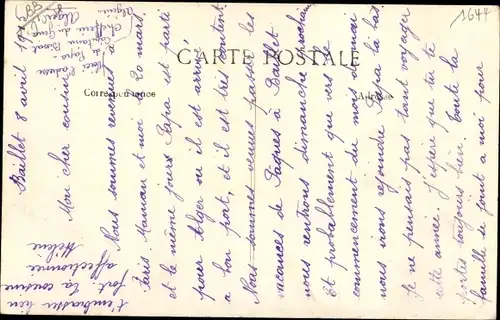 CARTE POSTALE
Correspondance
Adresse
1644
Baillet 8 avril 1915
Mon cher cousin
Nous sommes revenues à
Paris Maman et moi le 20 mars,
et le même jour Papa est parti
pour Alger où il est arrivé
à bon port, et il est très content
Nous sommes venues passer les
vacances de Pâques à Baillet
nous rentrons dimanche prochain
Et probablement que vers le
commencement du mois de mai
nous irons rejoindre Papa là bas
Je ne pensais pas tant voyager
cette année. J'espère que tu te
portes toujours bien. Toute la
famille se joint à moi pour
t'embrasser bien
fort ta cousine
affectionnée
Hélène
de Papa
Capitaine
Chefferie du Génie
Alger
Algérie